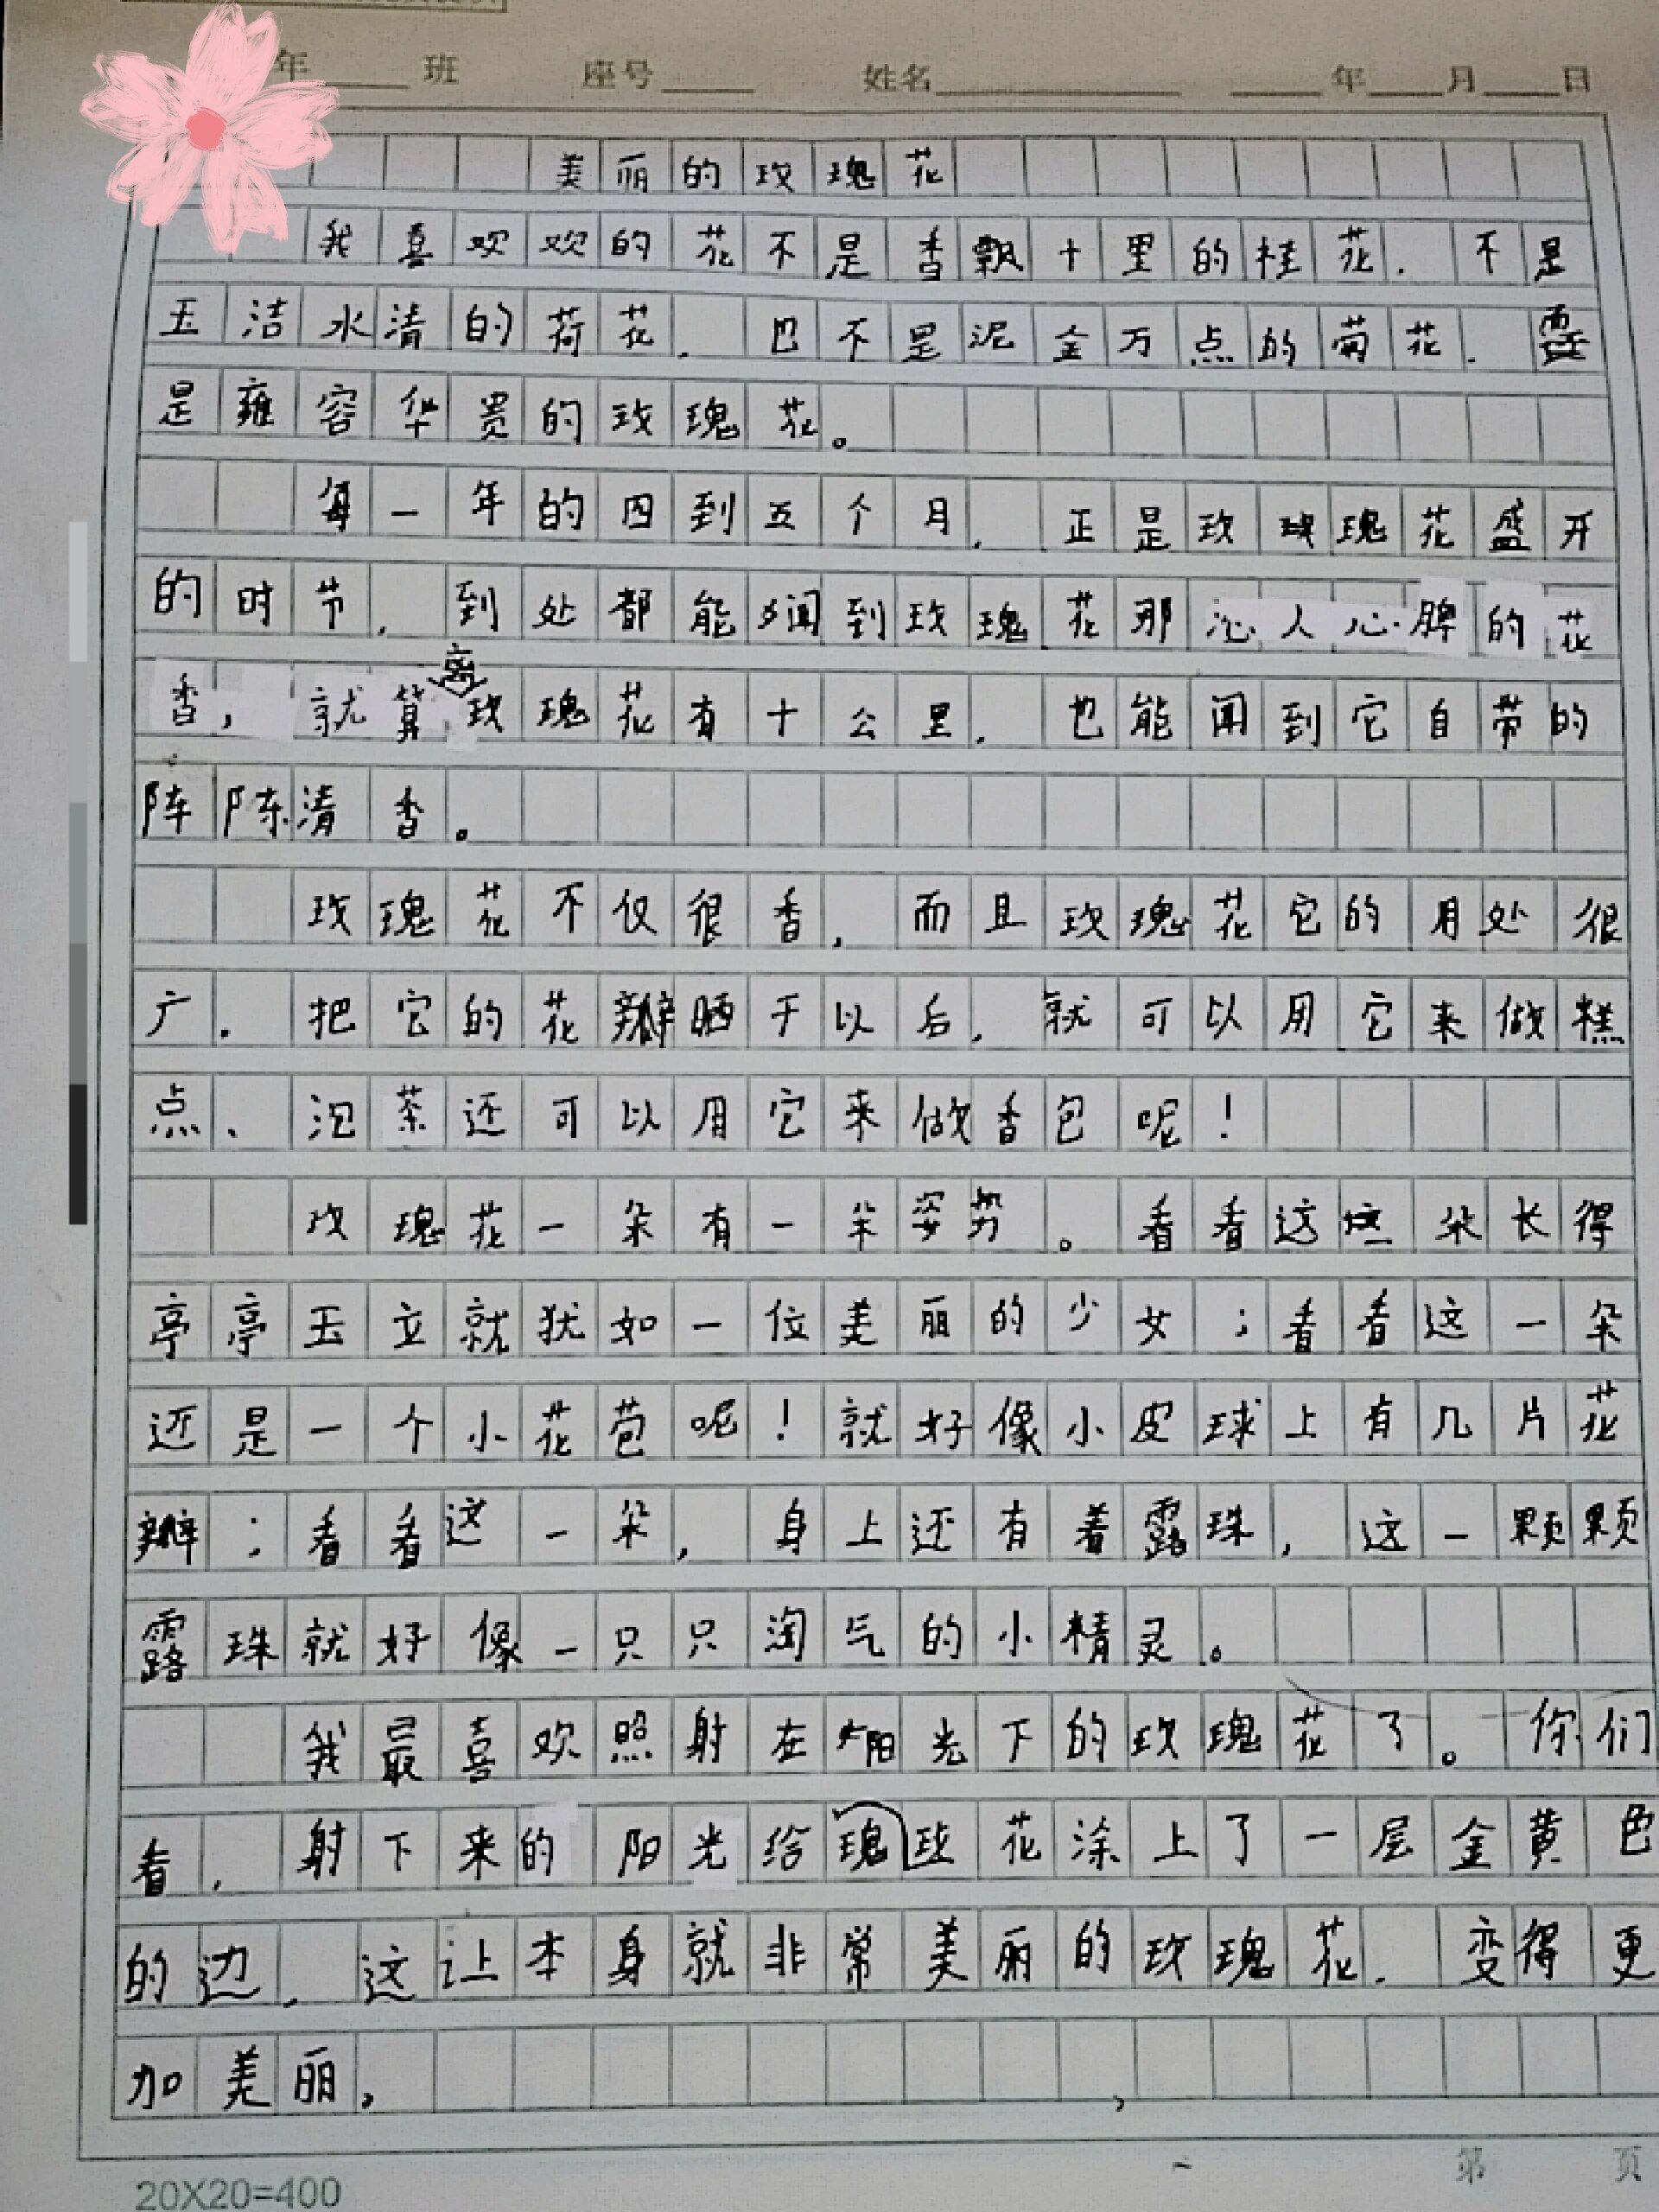 年 班 座号 姓名 年 月 日
美丽的玫瑰花
我喜欢欢的花不是香飘十里的桂花，不是
玉洁水清的荷花，也不是泥金万点的菊花，
是雍容华贵的玫瑰花。
每一年的四到五个月，正是玫瑰花盛开
的时节，到处都能闻到玫瑰花那沁人心脾的花
香，就算离玫瑰花有十公里，也能闻到它自带的
阵阵清香。
玫瑰花不仅很香，而且玫瑰花它的用处很
广，把它的花瓣晒干以后，就可以用它来做糕
点、泡茶还可以用它来做香包呢！
玫瑰花一朵有一朵姿势。看看这朵长得
亭亭玉立就犹如一位美丽的少女；看看这一朵
还是一个小花苞呢！就好像小皮球上有几片花
瓣；看看这一朵，身上还有着露珠，这一颗颗
露珠就好像一只只淘气的小精灵。
我最喜欢照射在阳光下的玫瑰花了。你们
看，射下来的阳光给瑰玫花涂上了一层金黄色
的边，这让本身就非常美丽的玫瑰花，变得更
加美丽，
20X20=400
第 页